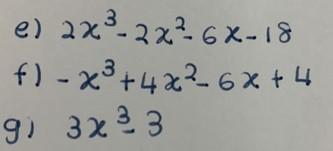 e) 2x³-2x²-6x-18
f) -x³+4x²-6x+4
g) 3x³-3